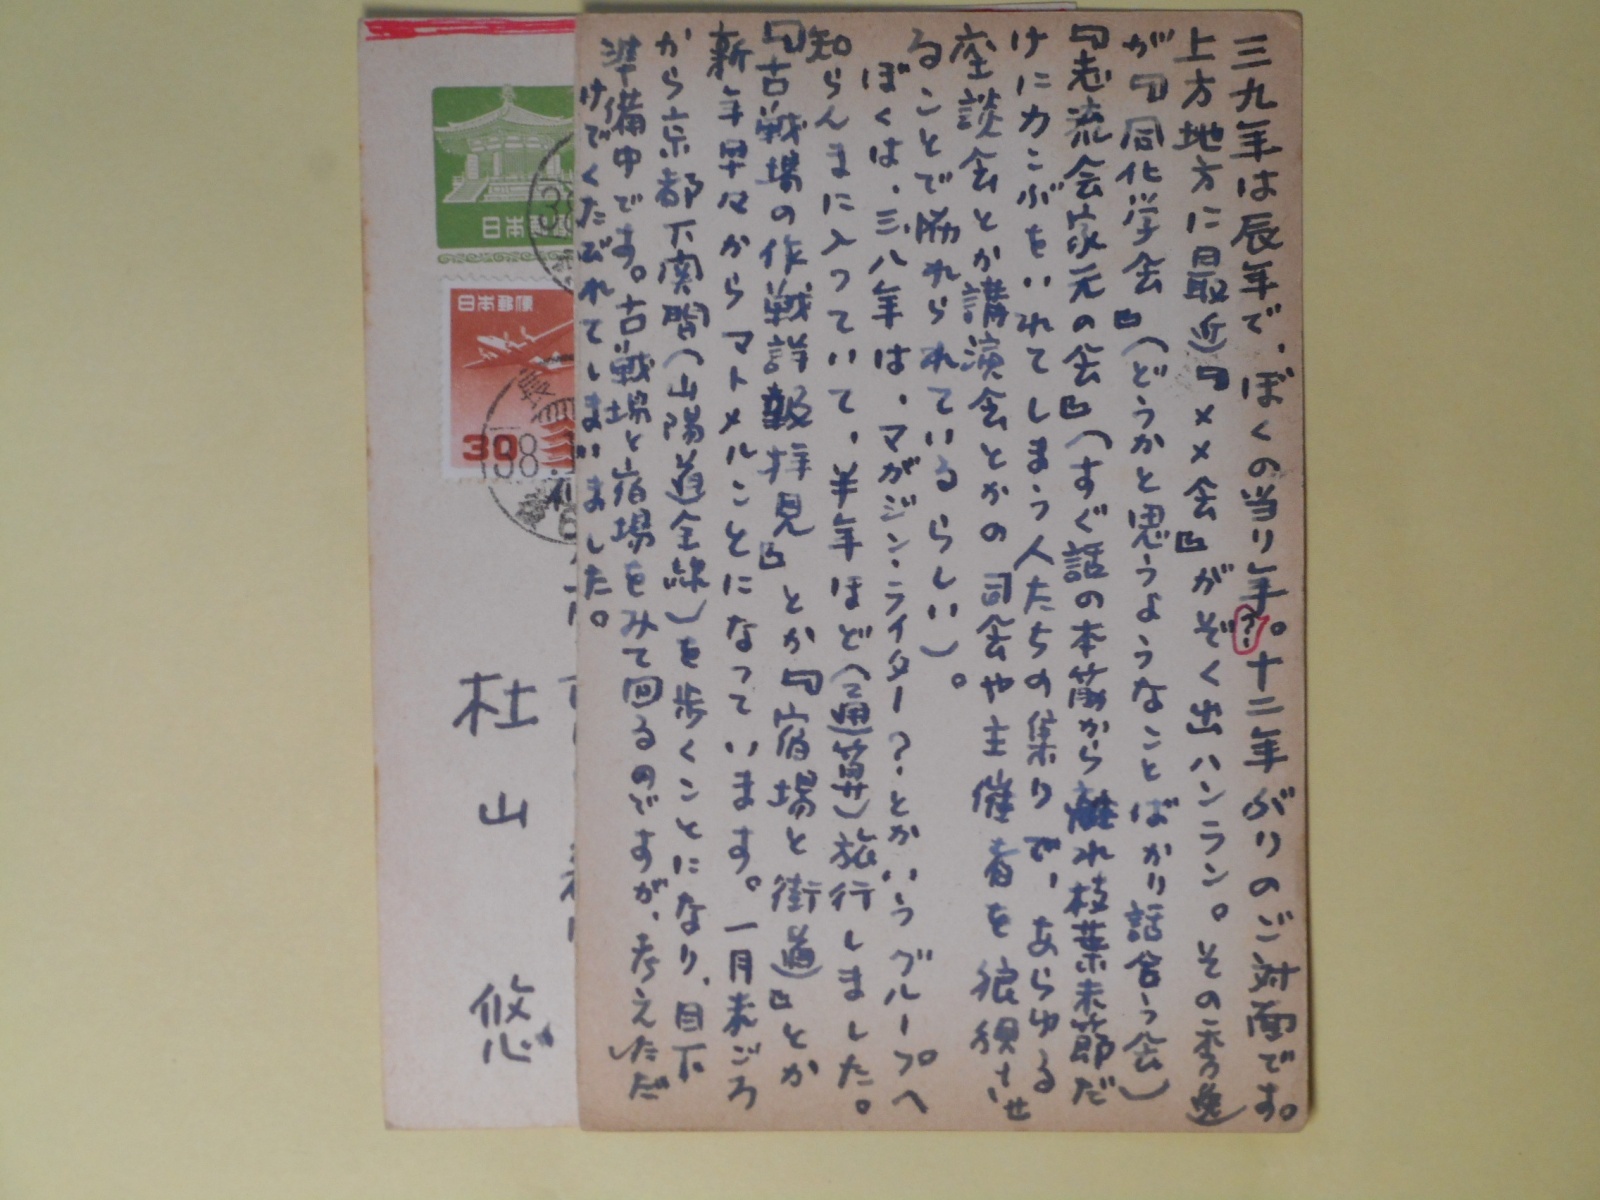 三九年は辰年で、ぼくの当り年?。十二年がりのご対面です。
上方地方に最近『××会』がぞく出ハンラン。その秀逸
が『同化学会』(どうかと思うようなことばかり話合う会)
『志流会家元の会』(すぐ話の本筋から離れ枝葉末節だ
けに力こぶをいれてしまう人たちの集りで、あらゆる
座談会とか講演会とかの司会や主催者を狼狽させ
ることで恐れられているらしい)。
ぼくは、三八年は、マガジン・ライター?とかいうグループへ
知らんまに入っていて、半年ほど(通算)旅行しました。
『古戦場の作戦詳報拝見』とか『宿場と街道』とか
新年早々からマトメルことになっています。一月末ごろ
から京都下関間(山陽道全線)を歩くことになり、目下
準備中です。古戦場と宿場をみて回るのですが、考えただ
けでくたびれてしまいました。
日本郵便
日本郵便
30
38
杜山悠